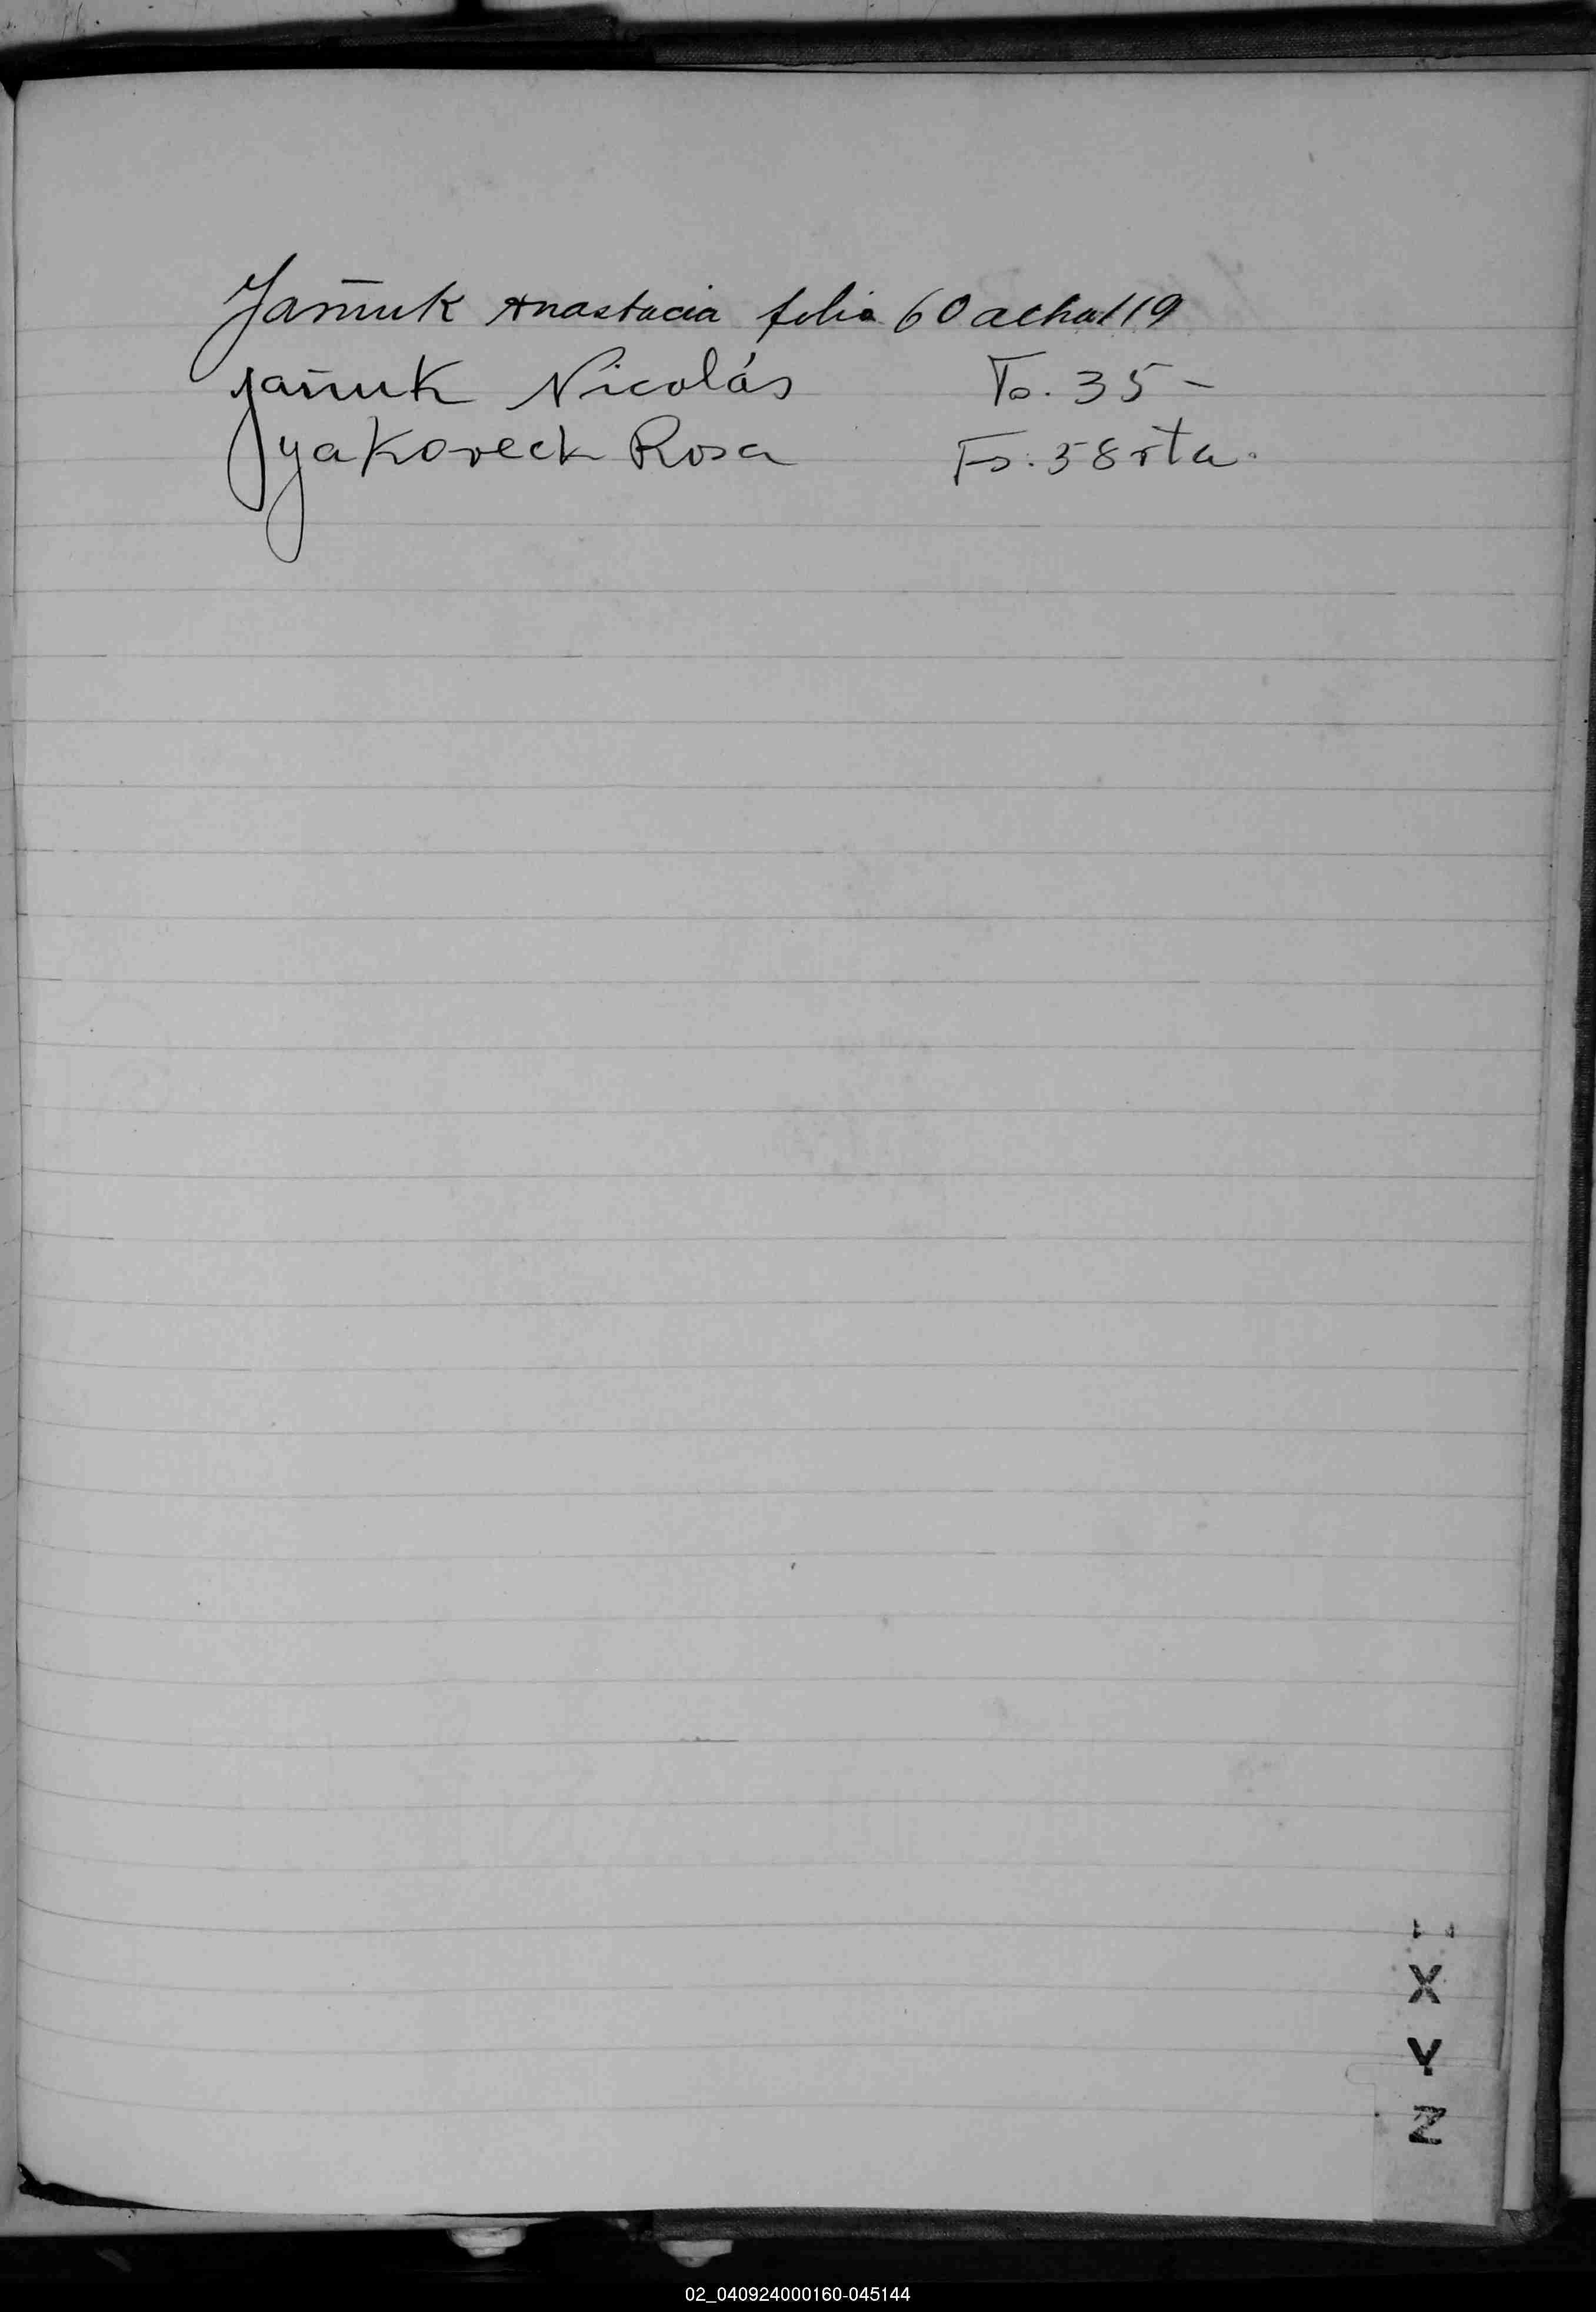 Yañuk Anastacia folio 60 acta 119
Yañuk Nicolás Fo. 35-
Yakoveck Rosa Fo. 58 vta.
X
Y
Z
02_040924000160-045144